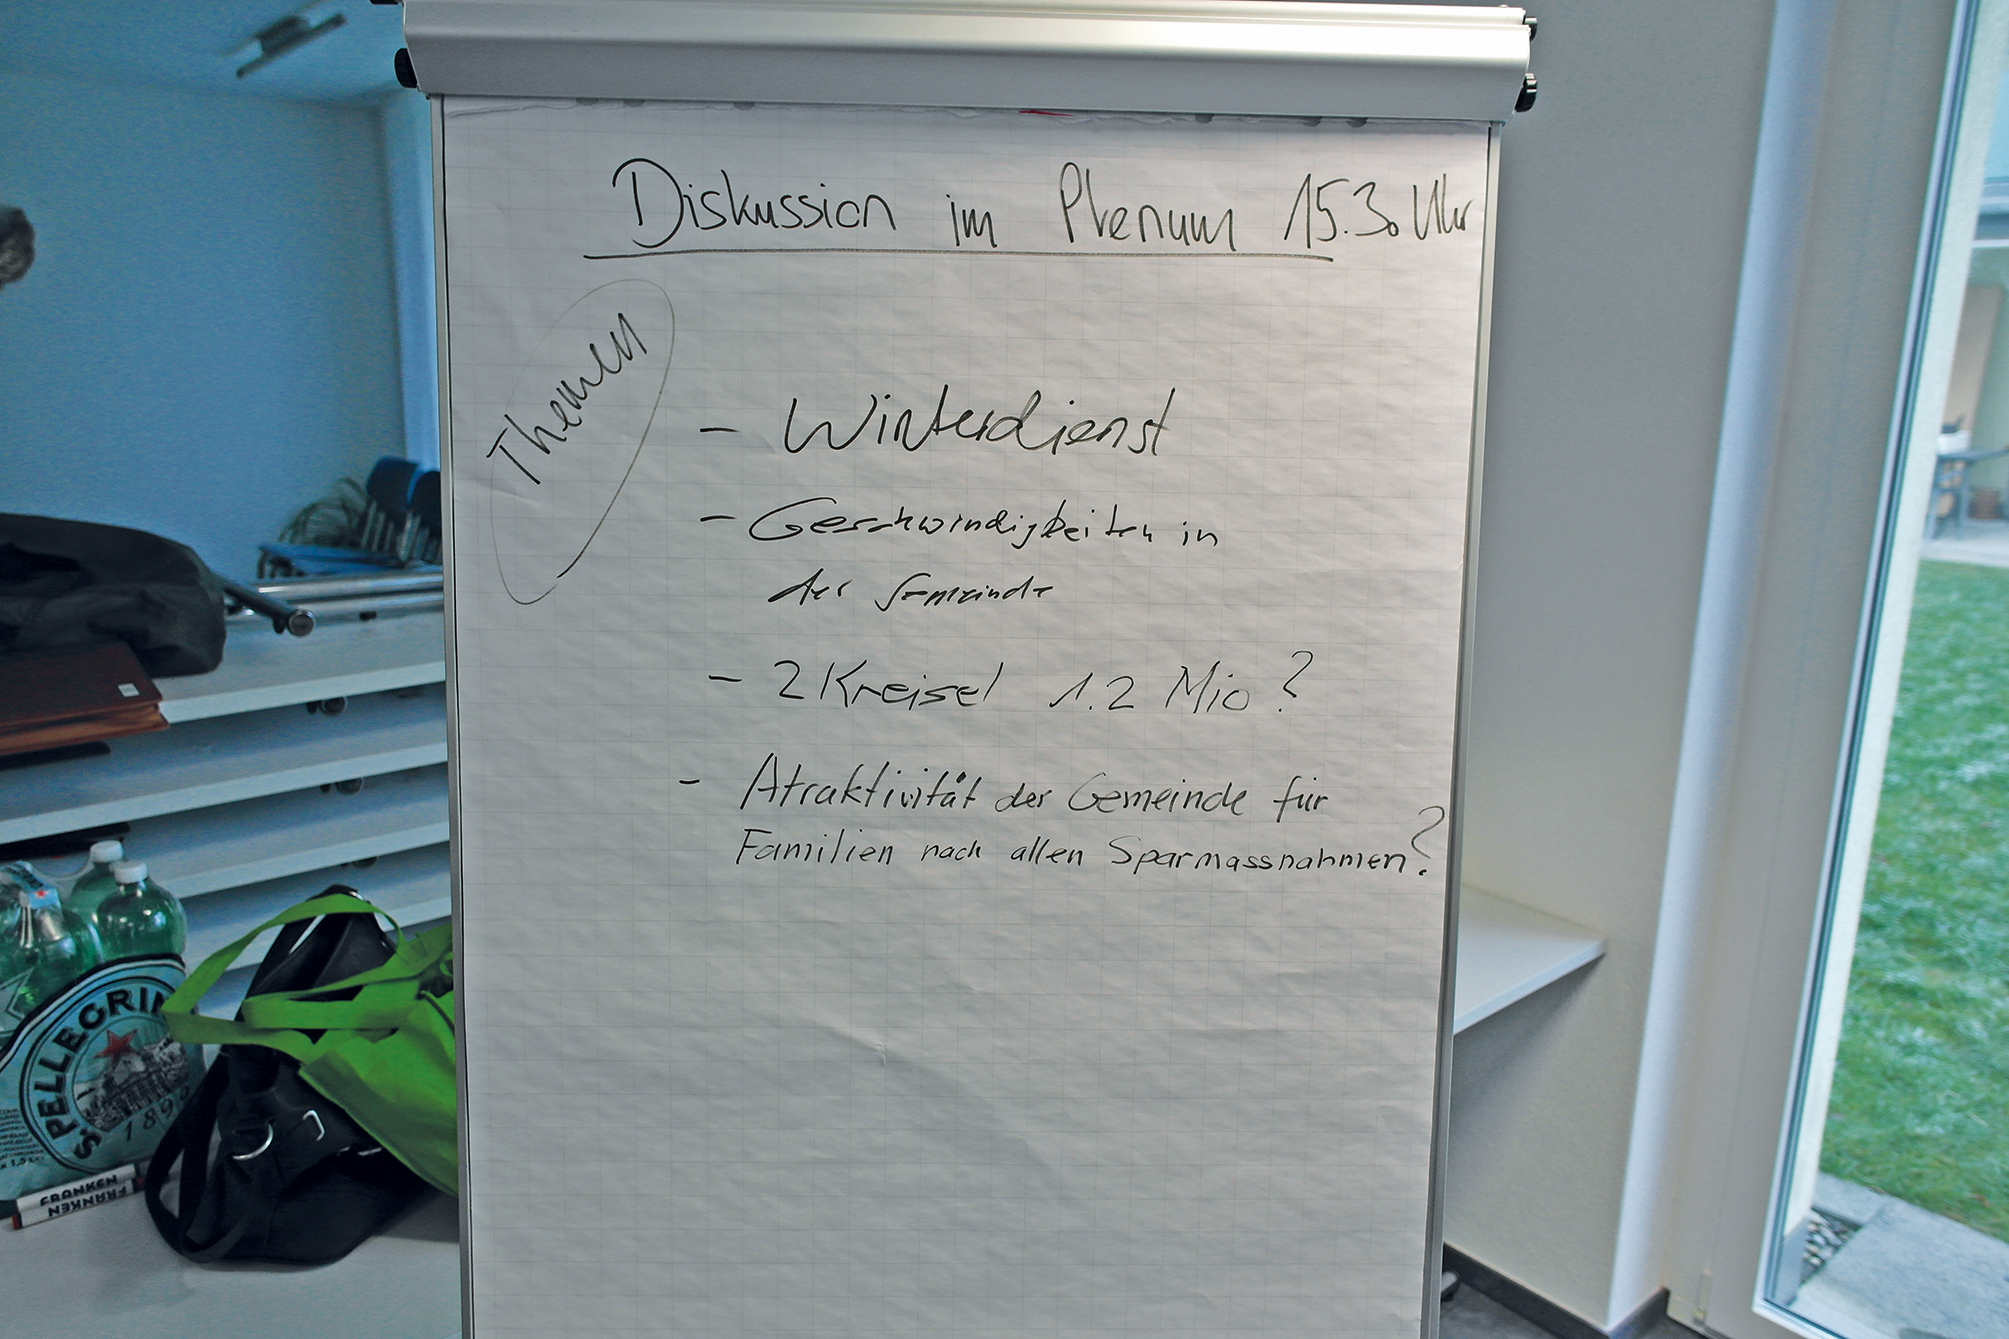 Diskussion im Plenum 15.30 Uhr
Themen
- Winterdienst
- Geschwindigkeiten in
der Gemeinde
- 2 Kreisel 1.2 Mio?
- Atraktivität der Gemeinde für
Familien nach allen Sparmassnahmen?
S.PELLEGRIN
1899
FRANKEN
FRANKEN